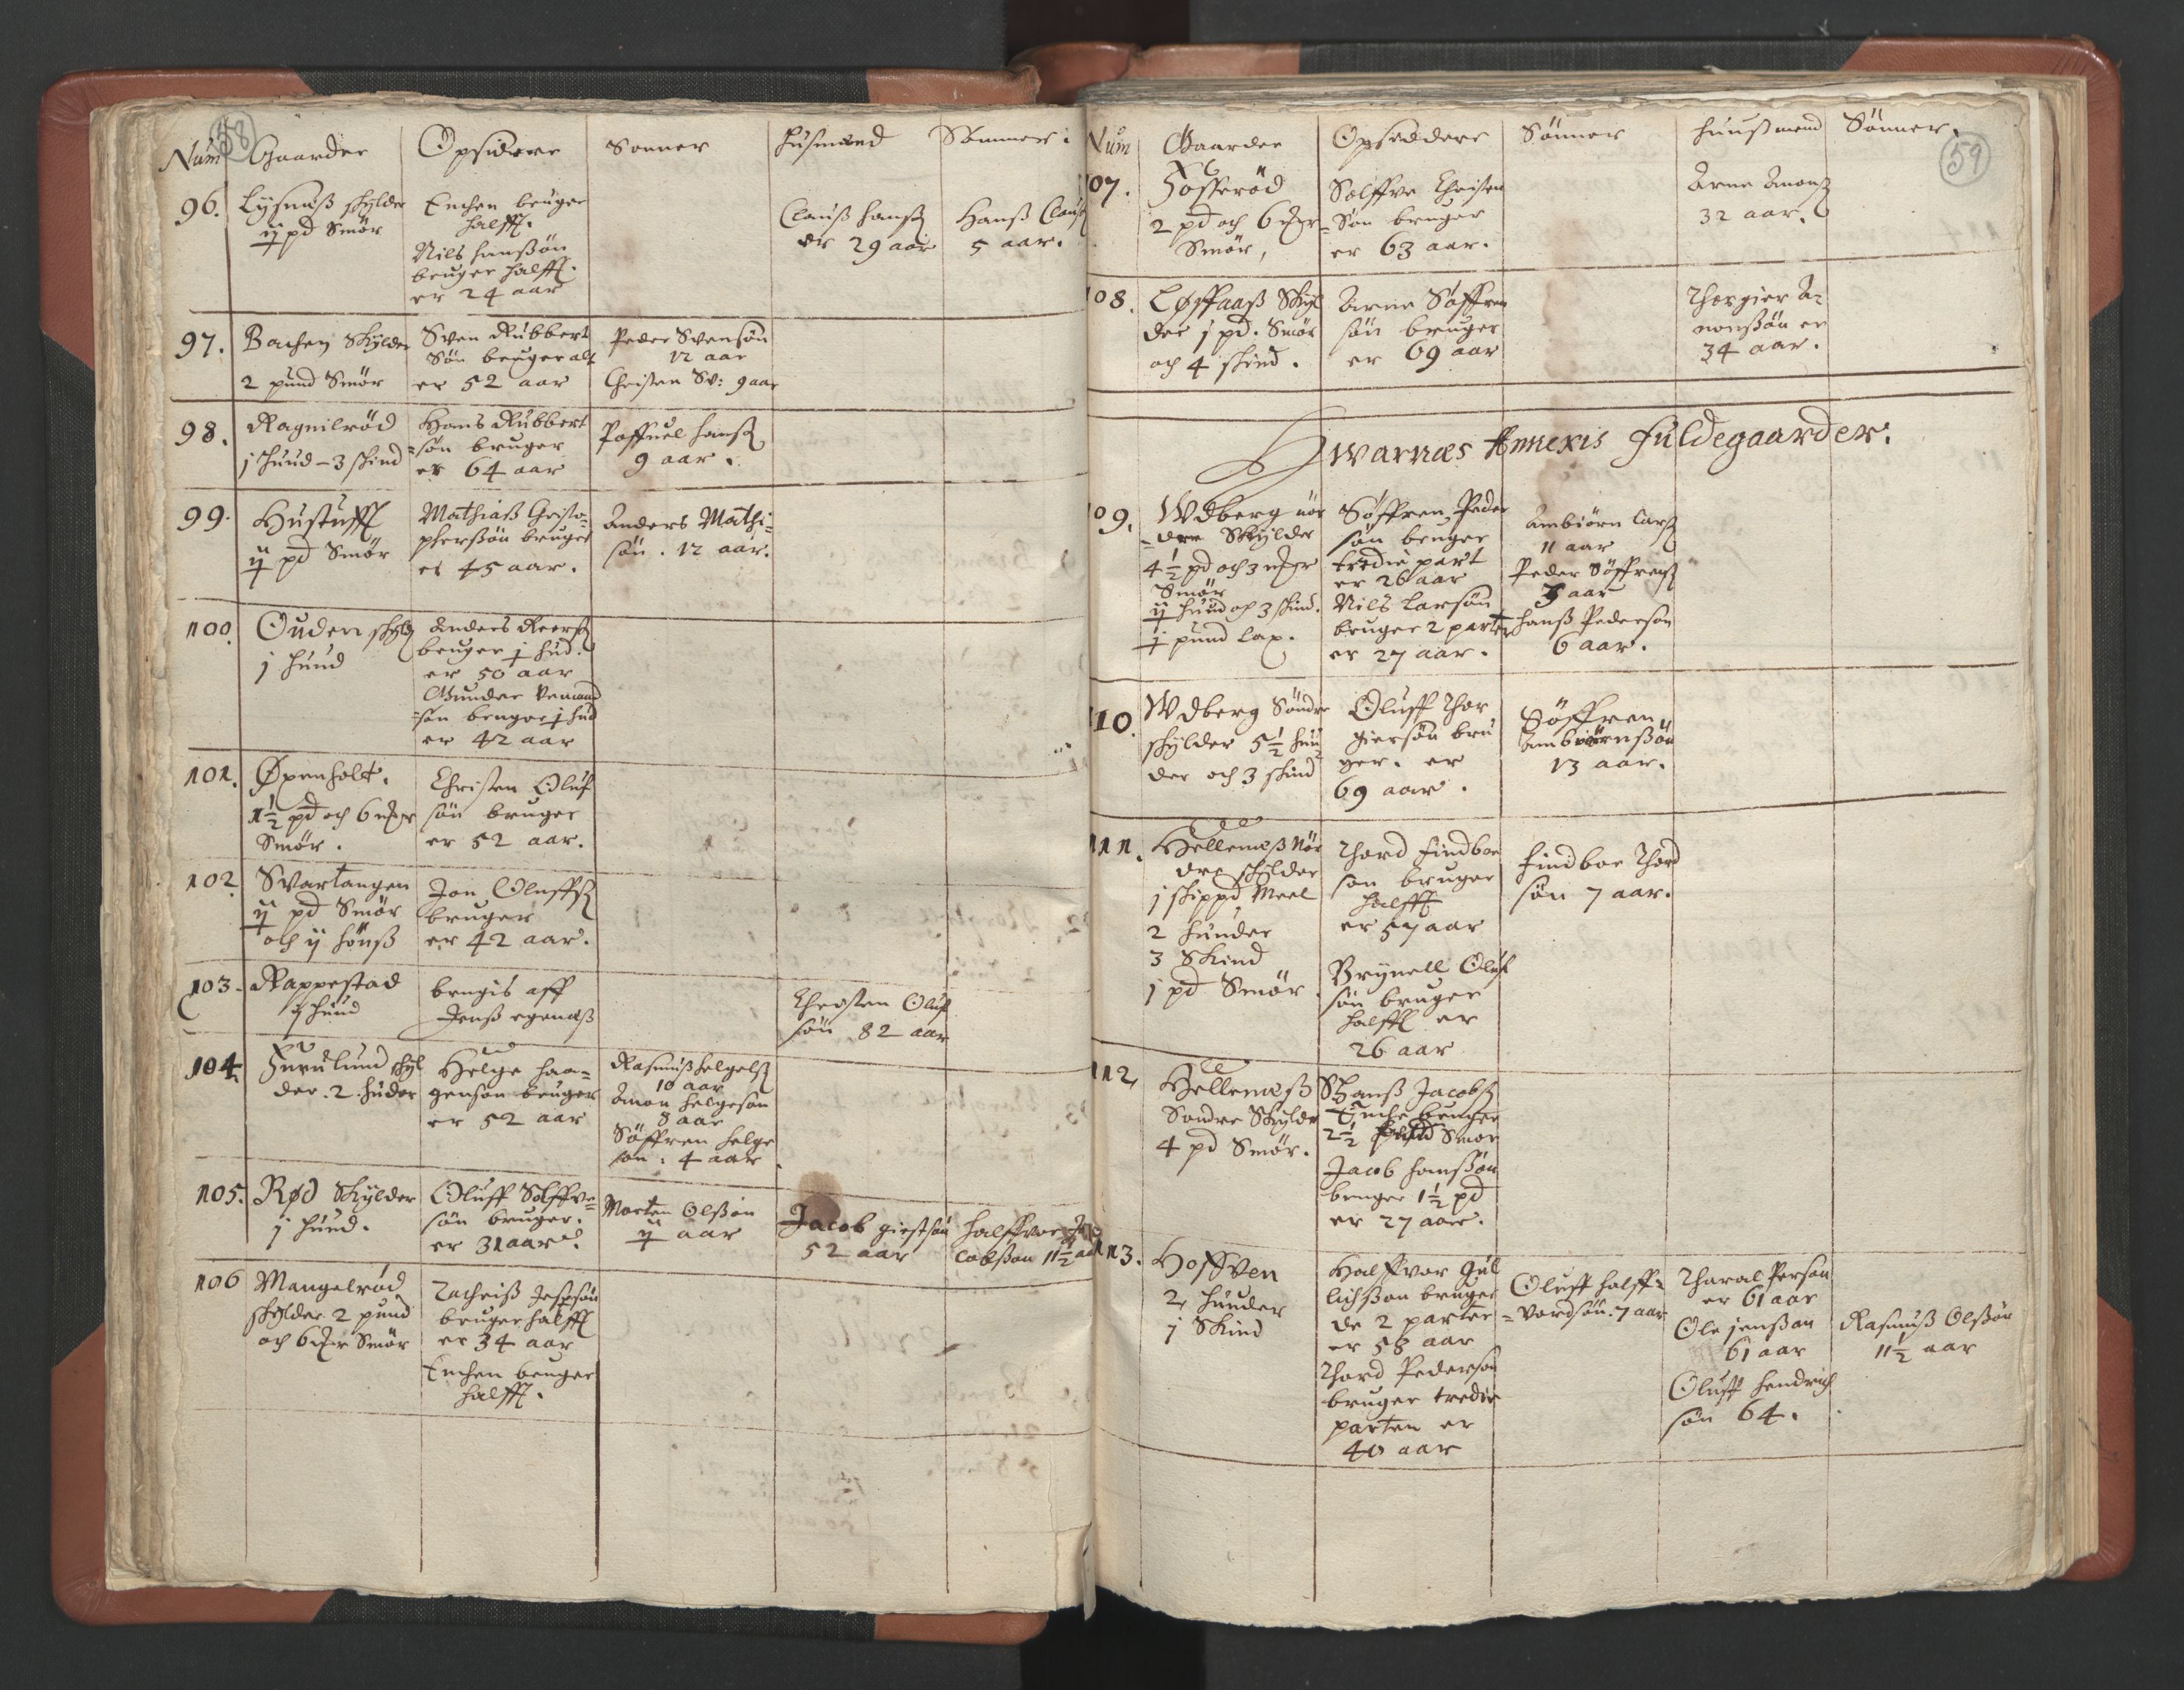 58
Num Gaarder Opsidere Sønner Husmænd Sønner
96. Lysnæß skylder
ij pd Smör
Enchen bruger
halfft.
Nils hanßön
bruger halfft.
er 24 aar
Clauß hanß
er 29 aar
Hanß Clauß
5 aar.
97. Bachen Skylder
2 pund Smör
Sven Rubbert
Sön bruger alt
er 52 aar
Peder Svensön
12 aar
Christen Sv: 9 aar
98. Ragnilröd
j huud - 3 skind
Hans Rubbert
sön bruger
er 64 aar
Poffuel hanß
9 aar.
99. Hustufft
ij pd Smör
Mathiaß Christo-
phersön bruger
er 45 aar.
Anders Mathi-
sön. 12 aar.
100. Ouden skyld
j huud
Anders
bruger j hud.
er 50 aar
Gunder Vemund
sön bruger j hud
er 42 aar
101. Öxenholt.
1½ pd och 6
Smör.
Christen Oluf
sön bruger
er 52 aar.
102. Svartangen
ij pd Smör
och ij hönß
Jon Oluffß
bruger
er 42 aar.
103. Rappestad
j huud
brugis aff
Jenß egenæß
Christen Oluf
sön 82 aar
104. Furulund skyl
der. 2. huder
Helge haa-
gensön bruger
er 52 aar
Rasmuß helgeß
10 aar
Amon helgesön
8 aar
Söffren helge
sön. 4 aar
105. Rød Skylder
j huud.
Oluff Solffve-
sön bruger.
er 31 aar.
Morten Olßön
ij aar
Jacob giestsön
52 aar
halffvor Ja
cobßön 11½ aar
106 Mangelröd
skylder 2 pund
och 6 Smör
Zachriß Jespsön
bruger halfft
er 34 aar
Enchen bruger
halfft.
59
Num Gaarder Opsiddere Sönner Huußmend Sönner.
107. Fosseröd
2 pd och 6
Smör,
Solffve Christen
Sön bruger
er 63 aar.
Arne Amonß
32 aar.
108. Løffaaß Skyl
der j pd. Smör
och 4 skind.
Arne Söffren
sön bruger
er 69 aar
Thorgier A-
monßön er
34 aar.
Hwarnæs Annexis Fuldegaarder.
109. Wdberg nör
-dre Skylder
4½ pd och 3
Smör
ij huud och 3 skind.
j pund lax.
Söffren Peder
sön bruger
tredie part
er 26 aar
Nils Larsön
bruger 2 parter
er 27 aar.
Ambiörn Larß
11 aar
Peder Söffrenß
3 aar
hanß Pedersön
6 aar.
110. Wdberg Söndre
skylder 5½ huu
der och 3 skind
Oluff Thor
giersön bru
ger. er
69 aar.
Söffren
Ambiörnßön
13 aar.
111. Hellenæß Nör
dre skylder
j skippd Meel
2 huuder
3 Skind
j pd Smör.
Thord Findboe
sön bruger
halfft
er 57 aar
Brynell Oluf
sön bruger
halfft er
26 aar
Findboe Thord
sön 7 aar.
112. Hellenæß
Söndre Skylder
4 pd Smör.
Hanß Jacobß
Enche bruger
2½ pund Smör
Jacob hanßön
bruger 1½ pd
er 27 aar.
113. Hoffven
2 huuder
j Skind
Halffvor Gul
lichßön bruger
de 2 parter
er 58 aar
Thord Pedersön
bruger tredie
parten er
40 aar
Oluff halff-
vordsön. 7 aar
Tharal Persön
er 61 aar
Ole jenßön
61 aar
Oluff Hendrich
sön 64.
Rasmuß Olßön
11½ aar